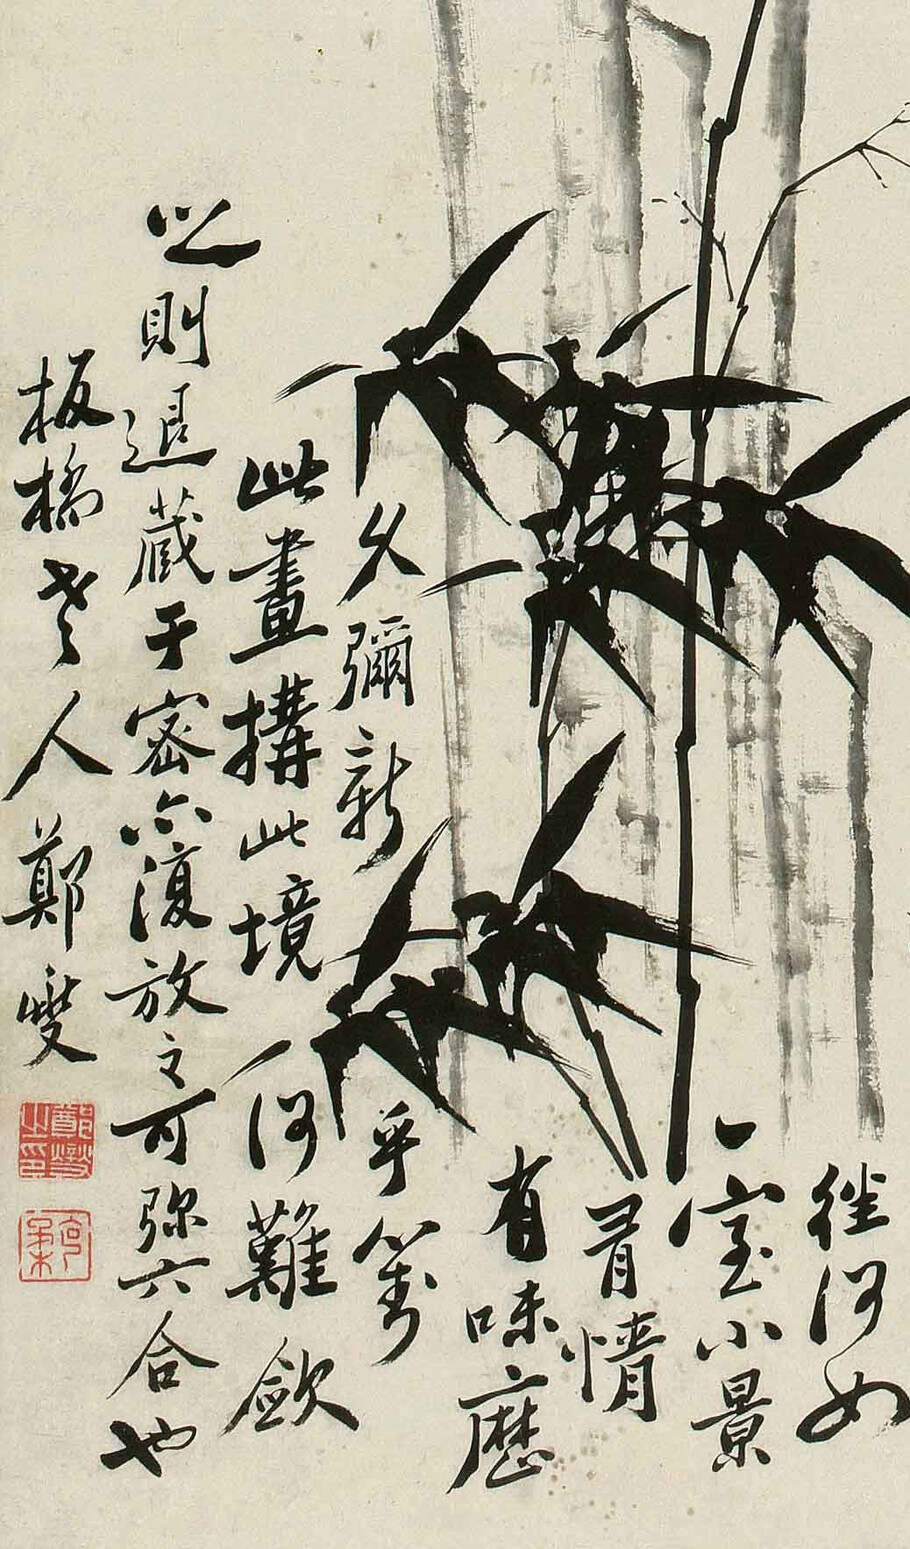 徑何如
一室小景
有情
有味歷
久彌新乎對
此畫構此境何難歛
之則退藏于密亦復放之可弥六合也
板橋老人鄭燮
鄭燮之印
克柔